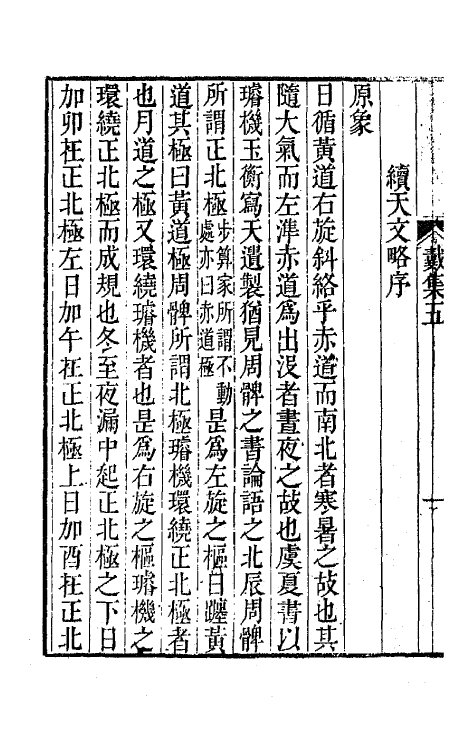 戴集五
一
續天文略序
原象
日循黃道右旋斜絡乎赤道而南北者寒暑之故也其
隨大氣而左準赤道為出沒者晝夜之故也虞夏書以
璿機玉衡寫天遺製猶見周髀之書論語之北辰周髀
所謂正北極步算家所謂不動處亦曰赤道極是為左旋之樞日躔黃
道其極曰黃道極周髀所謂北極璿機環繞正北極者
也月道之極又環繞璿機者也是為右旋之樞璿機之
環繞正北極而成規也冬至夜漏中起正北極之下日
加卯在正北極左日加午在正北極上日加酉在正北